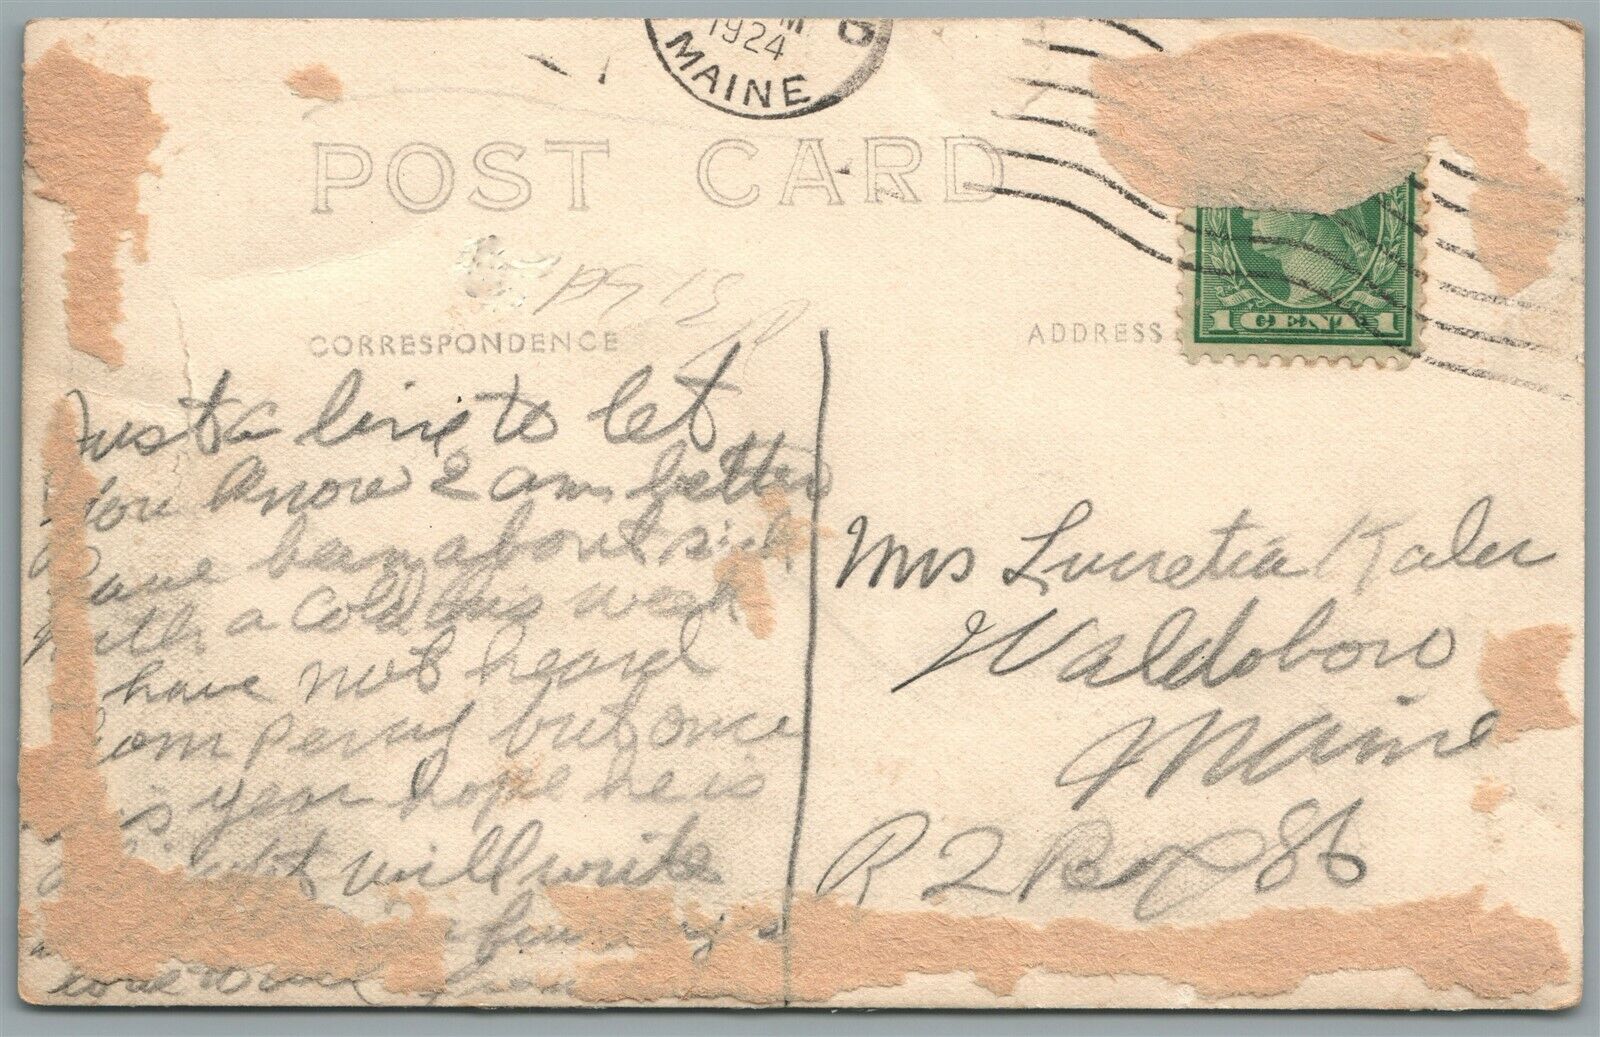 1924
MAINE
POST CARD
CORRESPONDENCE
ADDRESS
1 CENT 1
Just a line to let
you know I am better
have been about sick
with a cold this week
have not heard
from Percy but once
this year hope he is
will write
few
love to
from
Mrs Lucretia Kaler
Waldoboro
Maine
R 2 Box 86